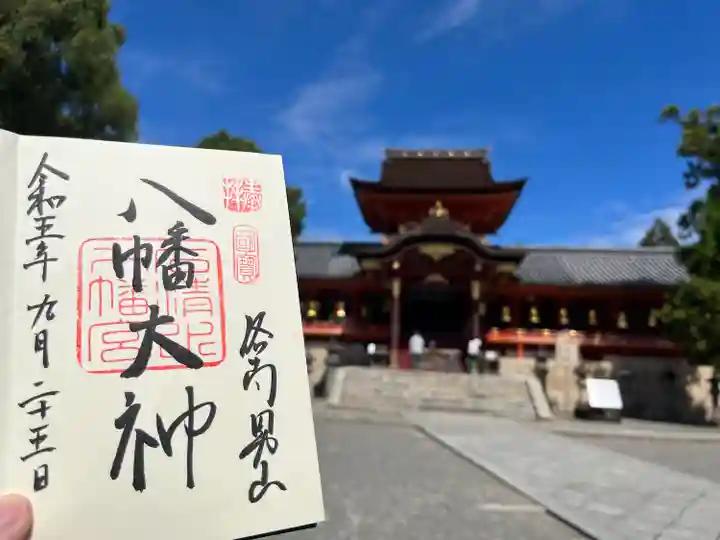 洛南男山
八幡大神
石清水八幡宮
令和五年九月二十五日